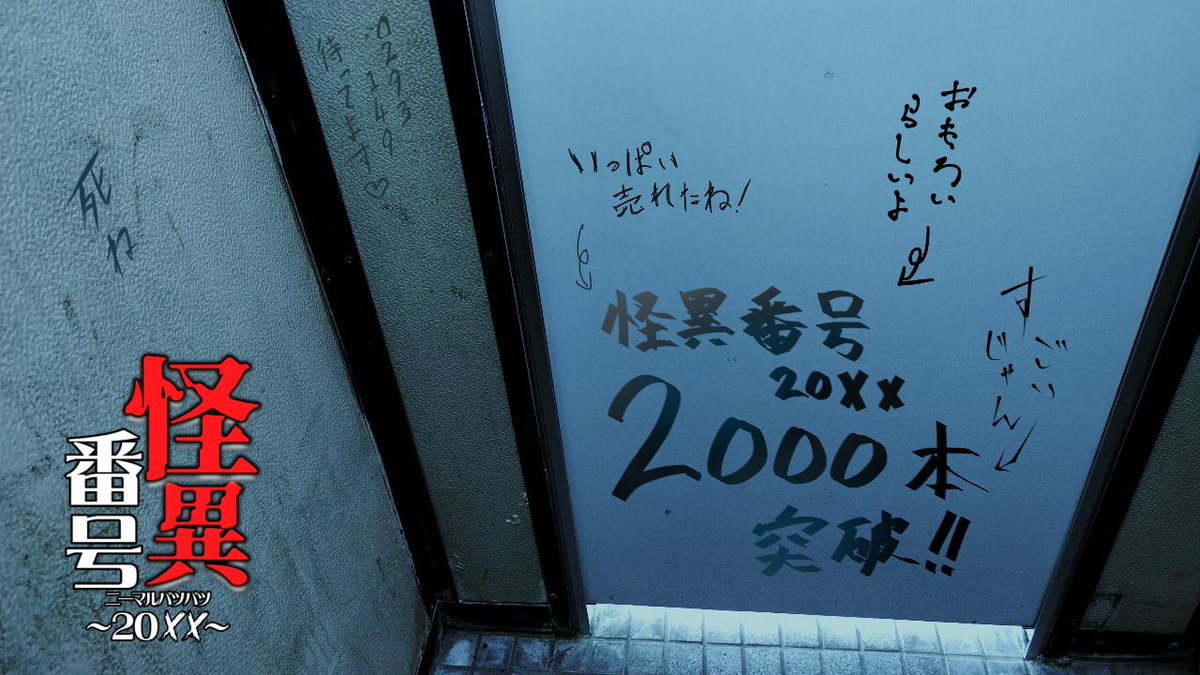 死ね
0293
249
待ってます♡
いっぱい
売れたね!
おもろい
らしいよ
すごい
じゃん
怪異番号
20XX
2000本
突破!!
怪異
番号
ニーマルバツバツ
~20XX~